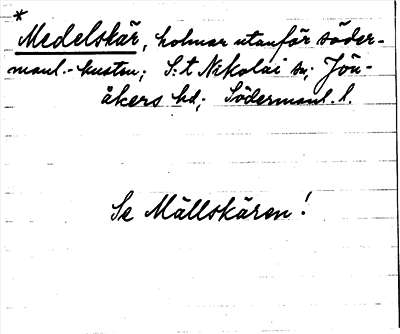 *
Medelskär, holmar utanför söder-
manl.-kusten; S:t Nikolai sn; Jön-
åkers hd; Södermanl. l.
Se Mällskären!